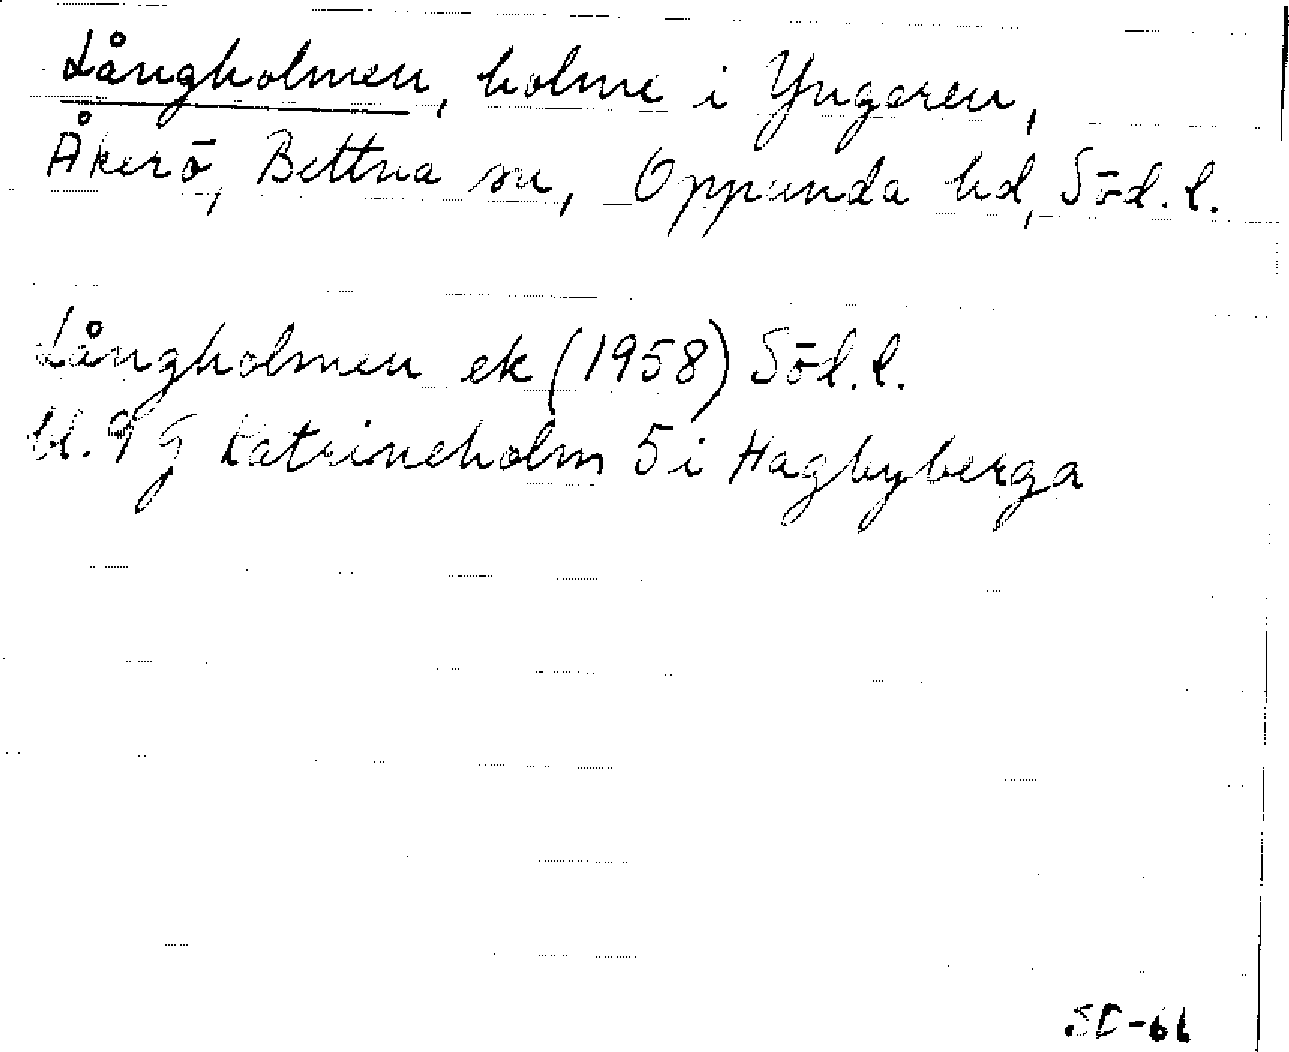 Långholmen, holme i Yngaren,
Åkerö, Bettna sn, Oppunda hd, Söd. l.
Långholmen ek (1958) Söd. l.
bl. 9 G Katrineholm 5 i Hagbyberga